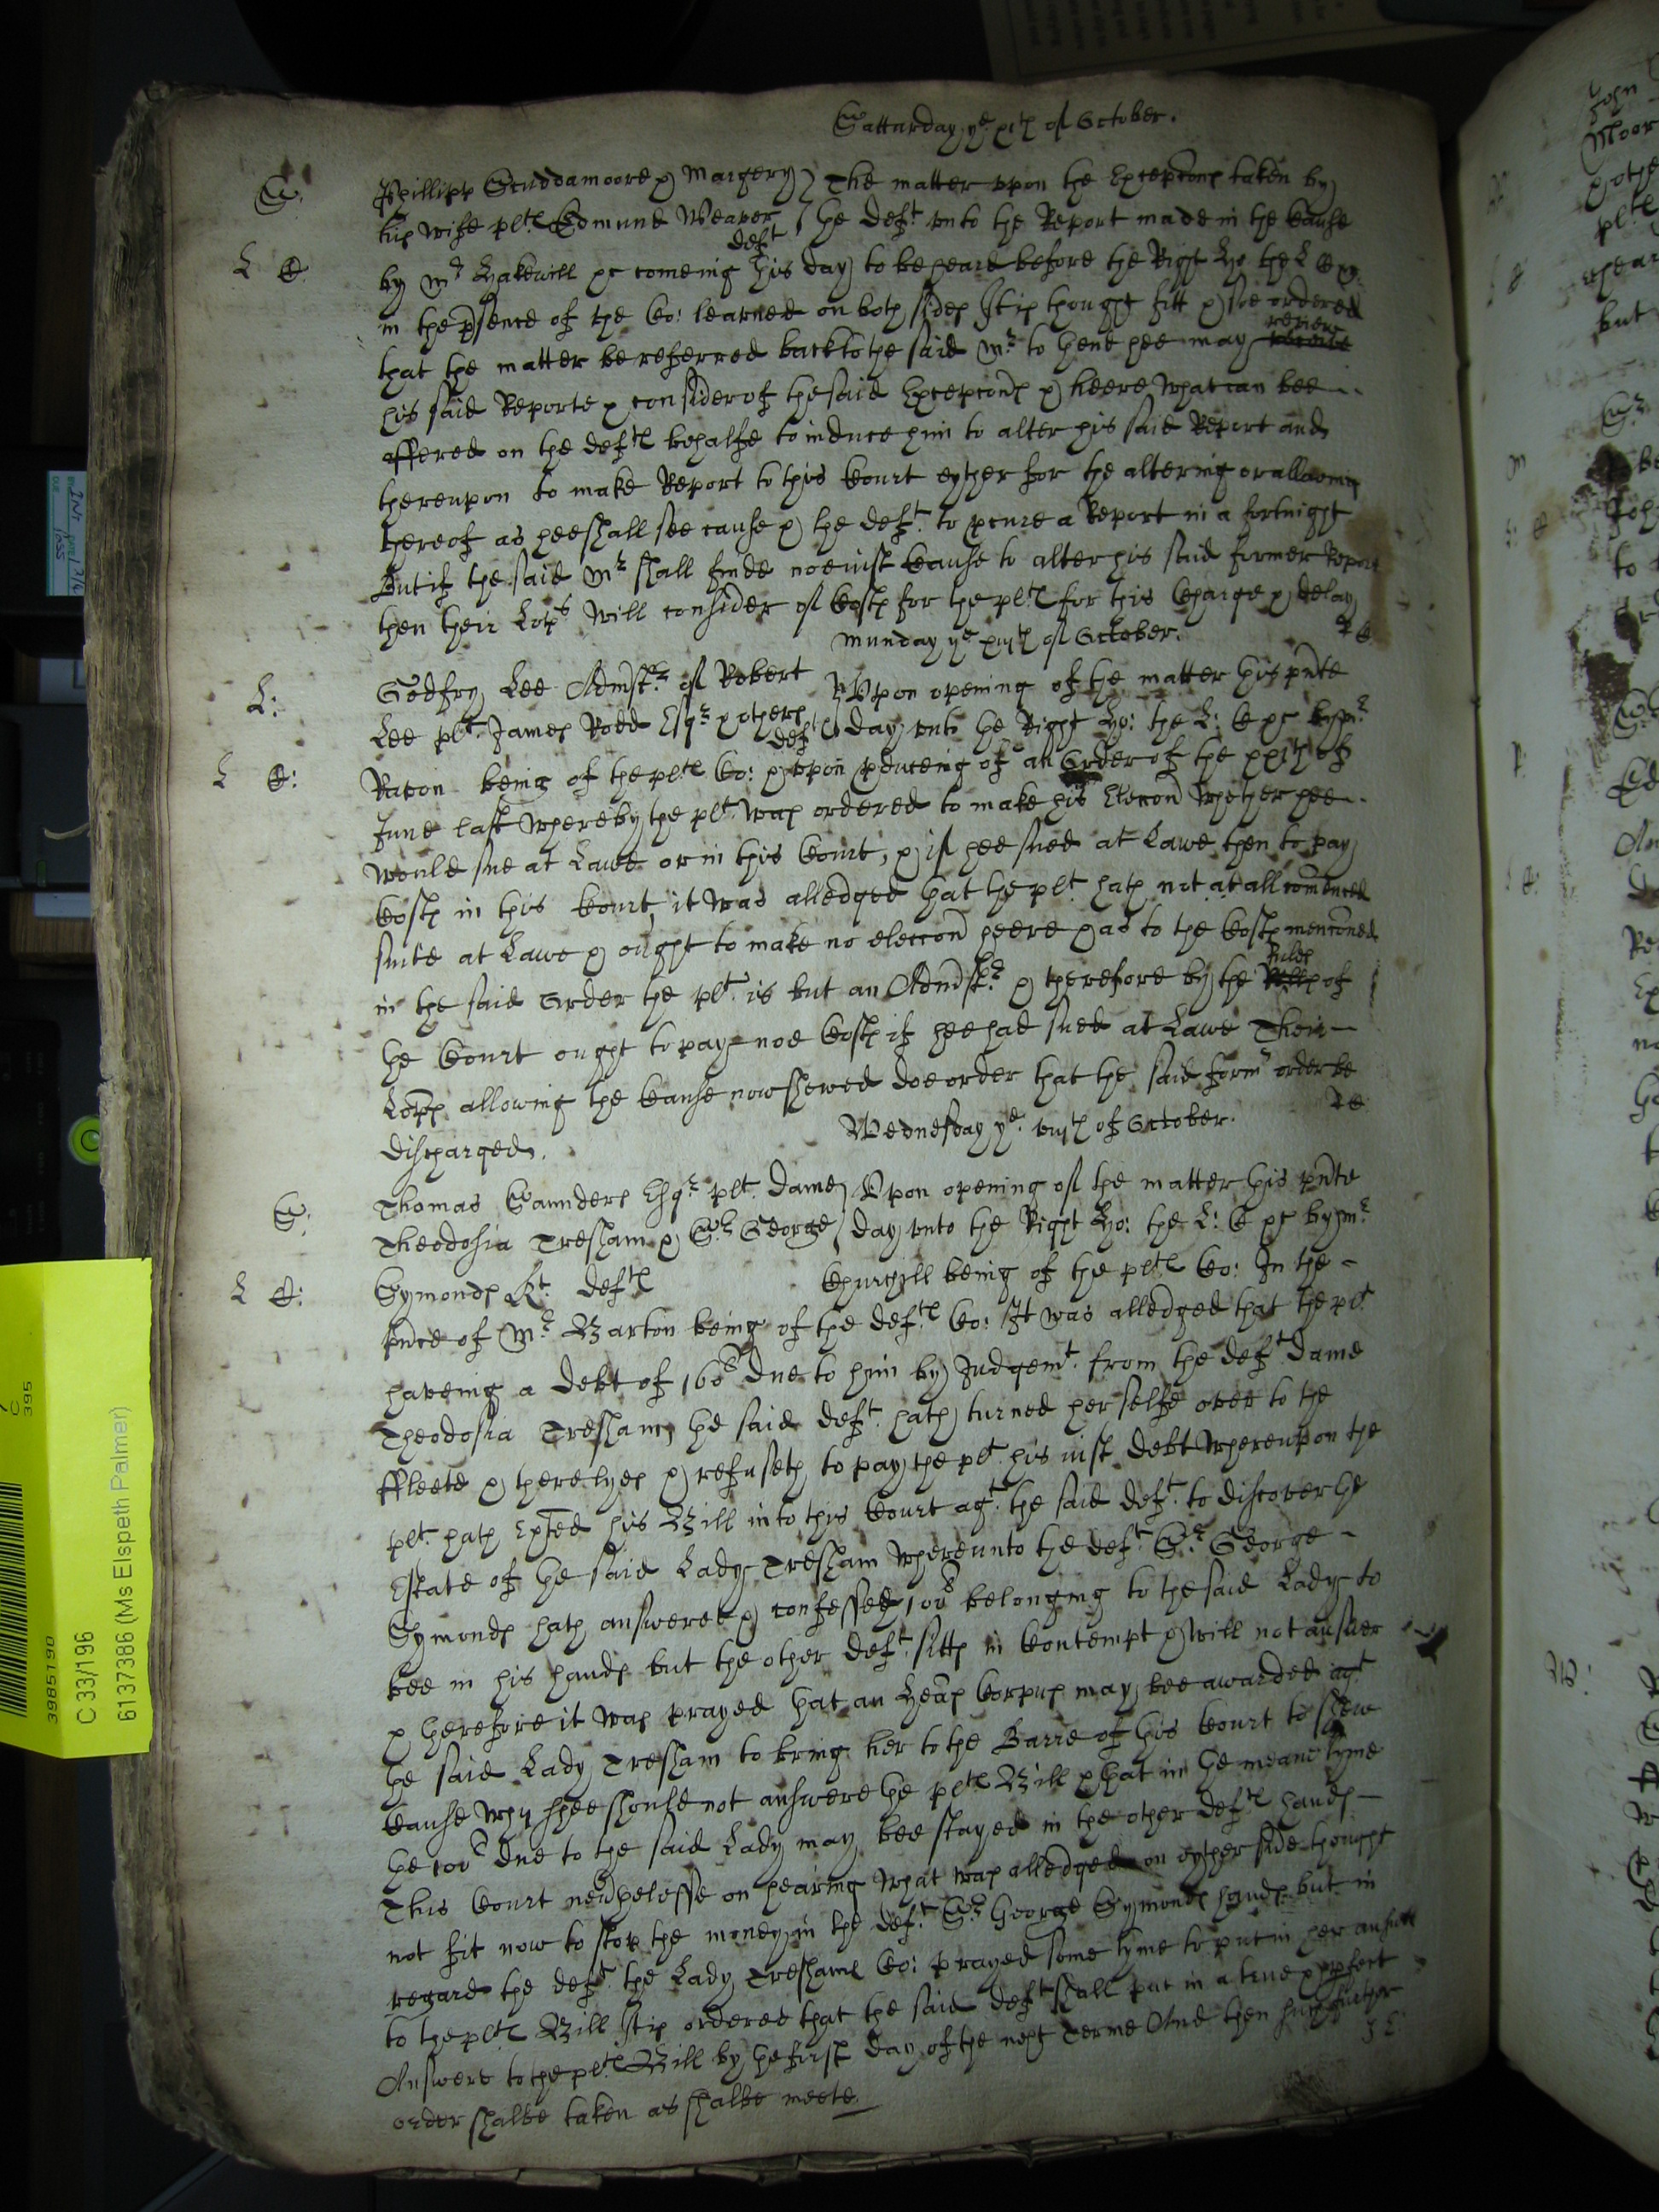 Satturday ye xith of October.
S. Phillipp Scuddamoore & Margery The matter vpon the Excepcons taken by
his wife plts Edmund Weaver deft the deft vnto the Report made in the Cause
L C by Mr Hakewill &c comeing this day to be heard before the Right Ho: the L C &c
in the psence of the Co: learned on both sides It is thought fitt & soe ordered
that the matter be referred back to the said Mr to thend hee may review
his said Reporte & consider of the said Excepcons & heere what can bee
offered on the defts behalfe to induce him to alter his said Report and
thereupon to make Report to this Court eyther for the altering or allowing
thereof as hee shall see cause & the deft. to pcure a Report in a fortnight
But if the said Mr shall finde noe iust Cause to alter his said former Report
then their Lopps will consider of Costs for the plts for this Charge & delay
Munday ye xiijth of October.
L: Godfry Lee Admstr. of Robert Vpon opening of the matter this pnte
Lee plt. James Rodd Esqr & others defts day vnto the Right Ho: the L: C &c by Mr
L C: being of the plts Co: & vpon pduceing of an Order of the xxith of
June last whereby the plt. was ordered to make his Eleccon whether hee
would sue at Lawe or in this Court, & if hee sued at Lawe then to pay
Costs in this Court, it was alledged that the plt. hath not at all comenced
suite at Lawe & ought to make no eleccon heere & as to the Costs menconed
in the said Order the plt. is but an Admstr. & therefore by the Rules of
the Court ought to pay noe Costs if hee had sued at Lawe Their
Lopps allowing the Cause now shewed doe order that the said formr order be
discharged.
Wednesday ye. of October.
S: Thomas Saunders Esqr plt. Dame Vpon opening of the matter this pnte
Theodosia Tresham & Sr George day vnto the Right Ho: the L: C &c by Mr
L C: Symonds Kt. defts Churchill being of the plts Co: In the
pnce of Mr Barton being of the defts Co: It was alledged that the plt
haveing a debt of due to him by Judgemt. from the deft Dame
Theodosia Tresham, the said deft. hath turned herselfe over to the
ffleete & there lyes & refuseth to pay the plt. his iust debt whereupon the
plt. hath his Bill into this Court agt. the said deft. to discover the
Estate of the said Lady Tresham whereunto the deft. Sr. George
Symonds hath answered & confessed 100l belonging to the said Lady to
bee in his hands but the other deft. sitts in Contempt & will not answer
& therefore it was prayed that an Heas Corpus may bee awarded agt
the said Lady Tresham to bring her to the Barre of this Court to shew
Cause why shee should not answere the plts Bill & that in the meane tyme
the 100l due to the said Lady may bee stayed in the other defts hands
This Court nevthelesse on hearing what was alledged on eyther side thought
not fit now to stop the money in the deft. Sr George Symonds hands but in
regard the deft. the Lady Treshams Co: prayed some tyme to put in her answere
to the plts Bill It is ordered that the said deft shall put in a true & pfect
Answere to the plts Bill by the first day of the next Terme And then such further
order shalbe taken as shalbe meete.
3985190
C 33/196
6137386 (Ms Elspeth Palmer)
C
395